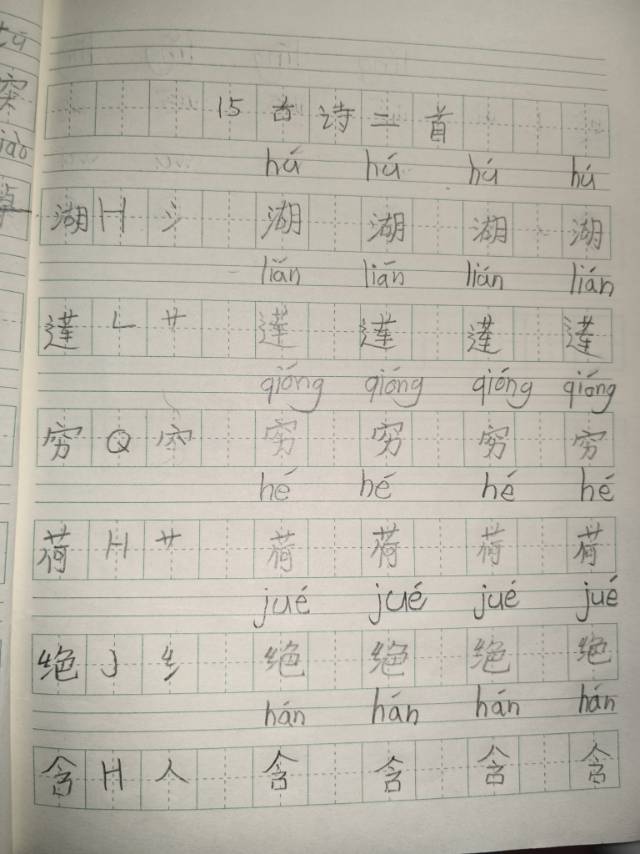 15 古诗二首
hú hú hú hú
湖 H 氵 湖 湖 湖 湖
lián lián lián lián
莲 L 艹 莲 莲 莲 莲
qióng qióng qióng qióng
穷 Q 穴 穷 穷 穷 穷
hé hé hé hé
荷 H 艹 荷 荷 荷 荷
jué jué jué jué
绝 J 纟 绝 绝 绝 绝
hán hán hán hán
含 H 人 含 含 含 含